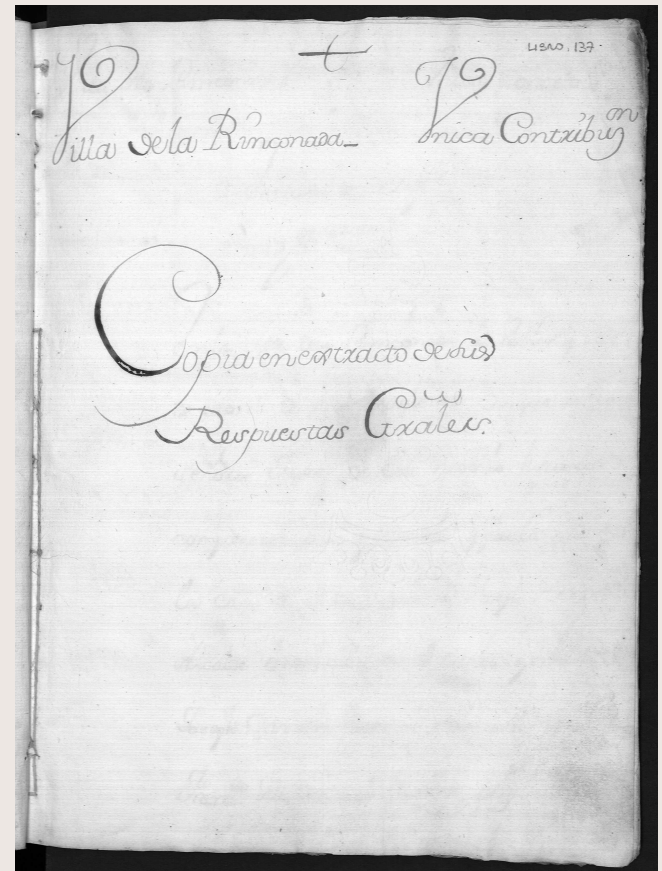 LIBRO, 137.
Villa de la Rinconada_ Vnica Contribuon
Copia en extracto de sus
Respuestas Grales.